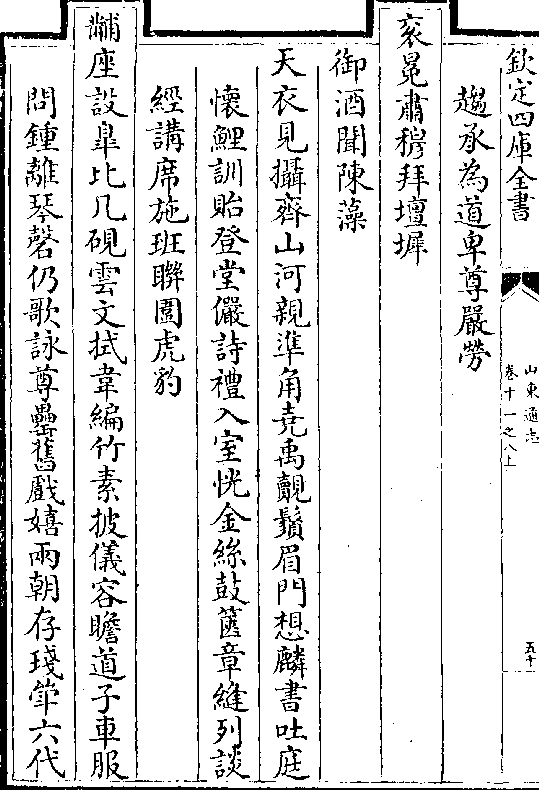 欽定四庫全書
山東通志
卷十一之八上
五十
趨承為道卑尊嚴勞
衮冕肅穆拜壇墀
御酒聞陳藻
天衣見攝齊山河親準角堯禹覿鬚眉門想麟書吐庭
懷鯉訓貽登堂儼詩禮入室恍金絲鼓篋章縫列談
經講席施班聯圜虎豹
黼座設臯比几硯雲文拭韋編竹素披儀容瞻道子車服
問鍾離琴磬仍歌詠尊罍舊戲嬉兩朝存琖斝六代